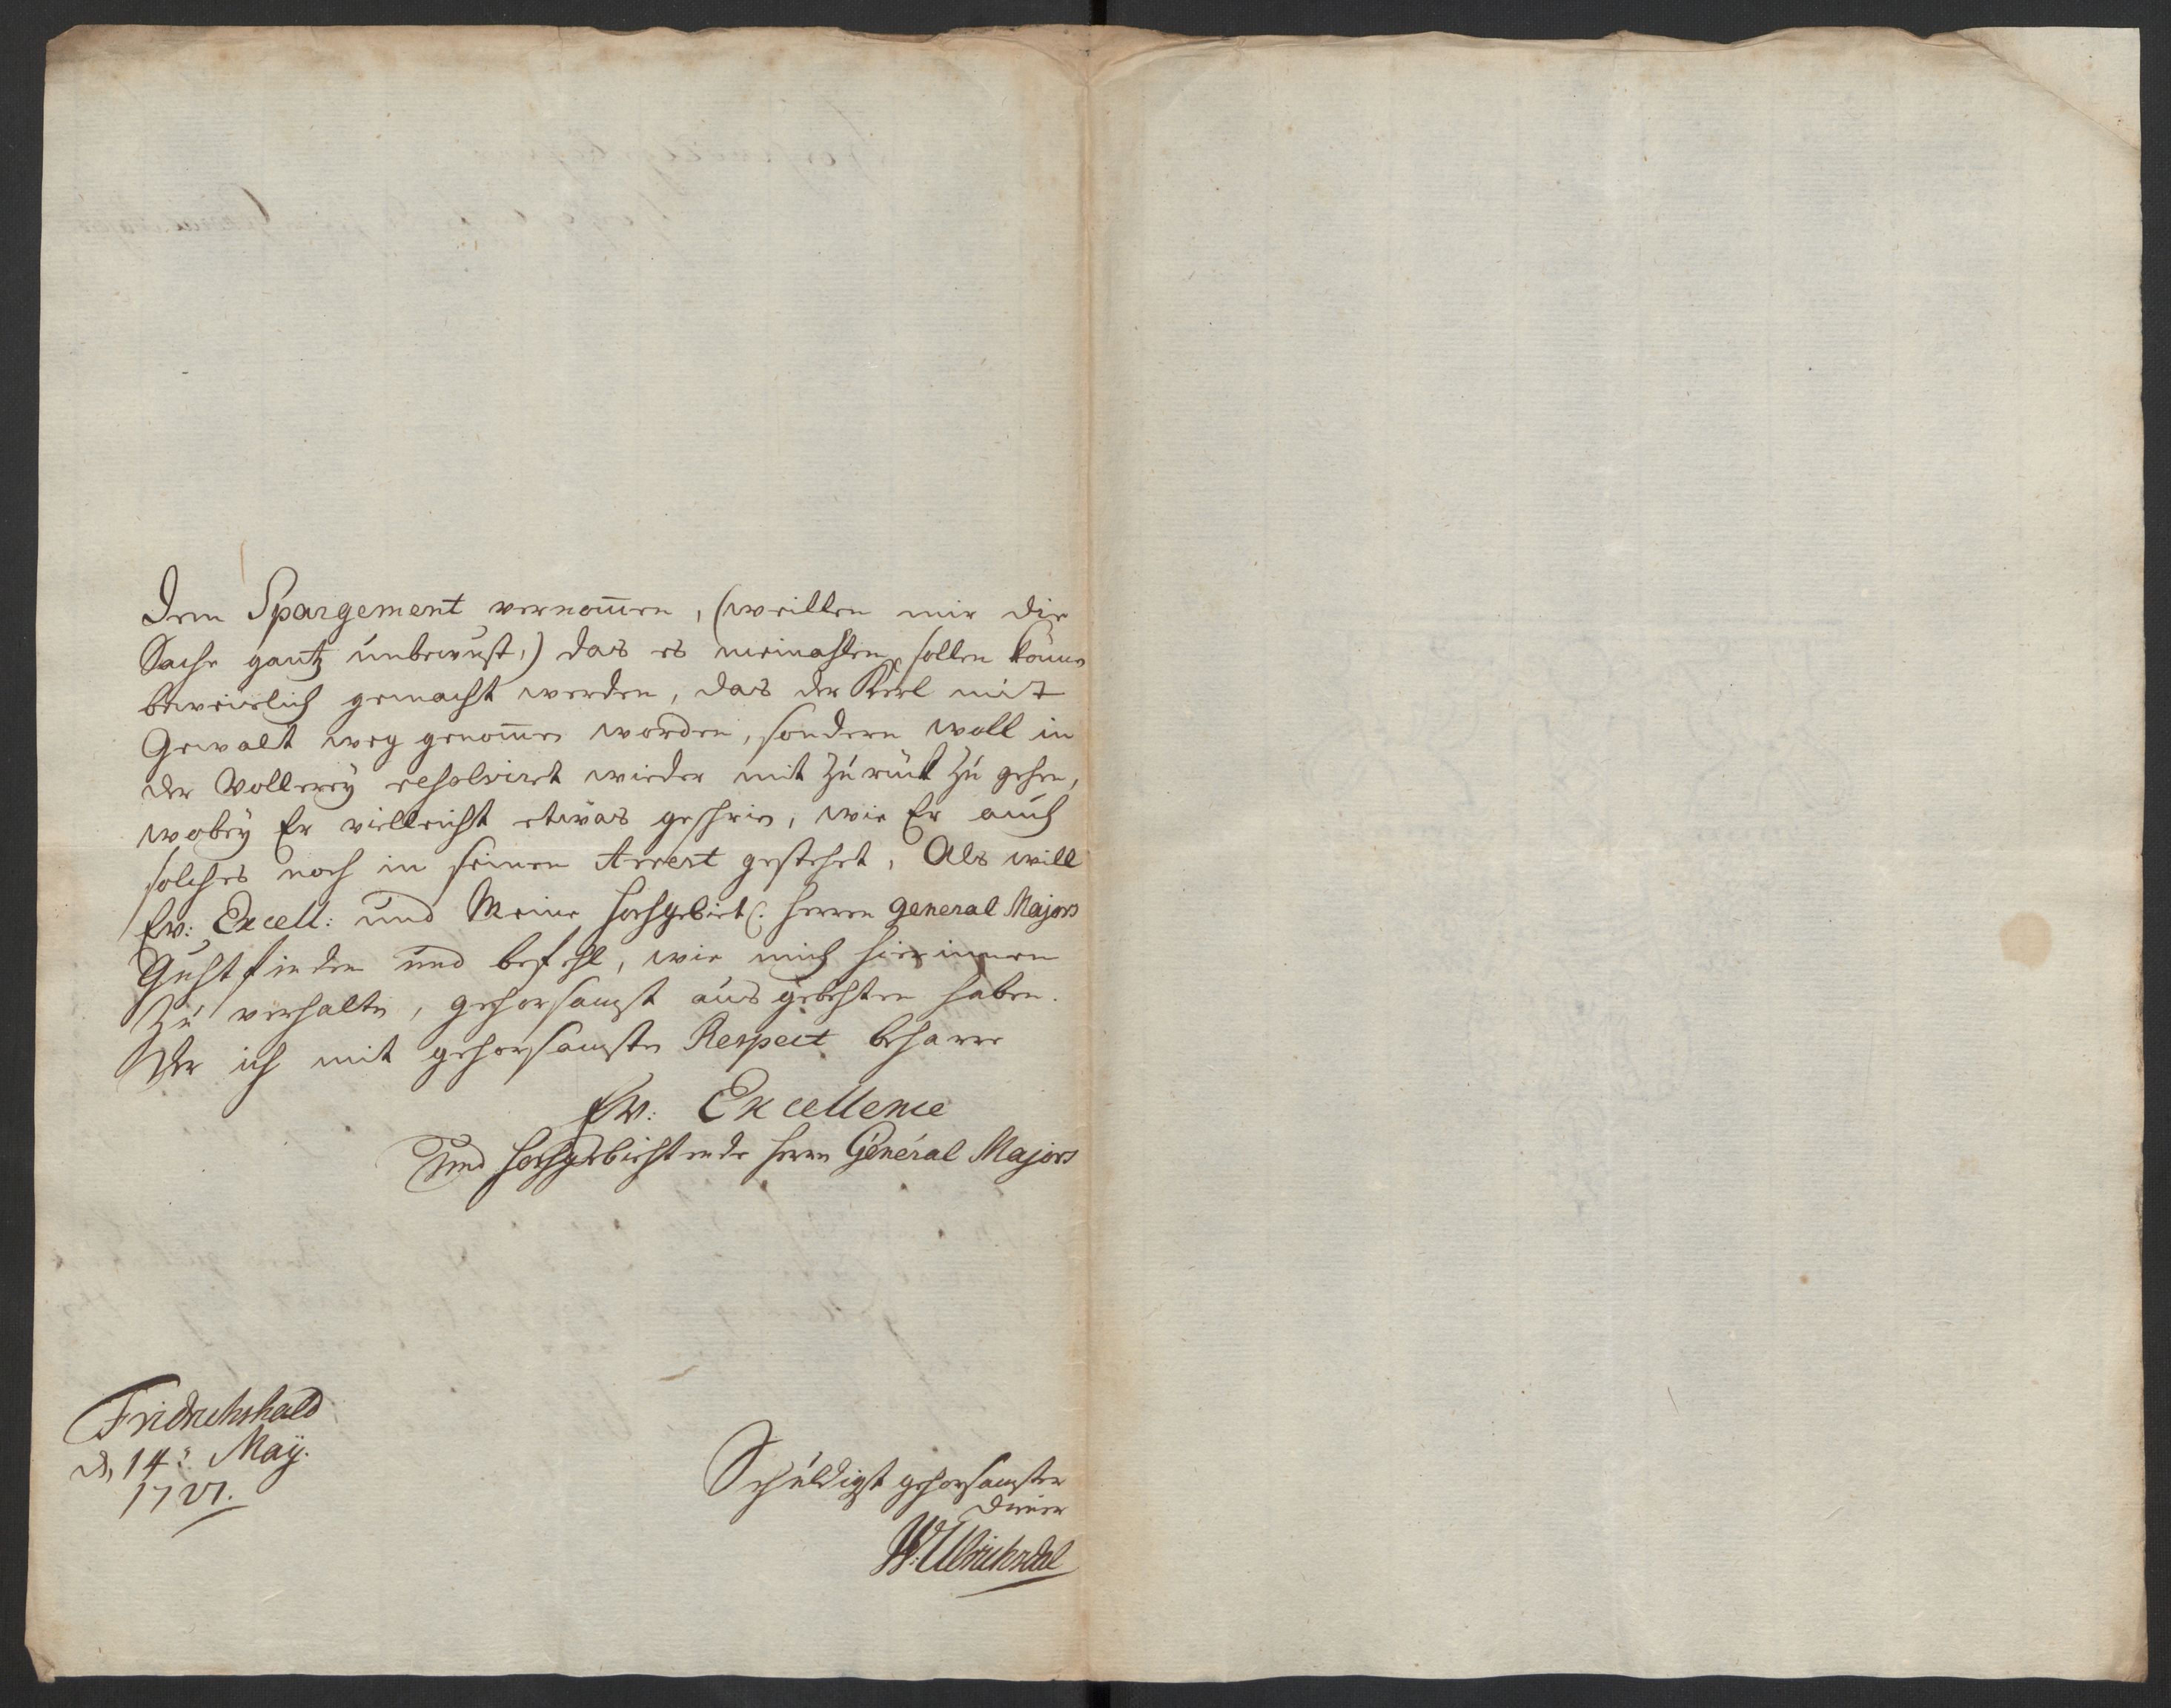 dem Spargement vernom̄en, (weillen mir die
Sache gantz unbewust,) das es niemahlen sollen köñe
beweislich gemacht werden, das der Kerl mit
Gewalt weg genom̄en worden, sondern woll in
der Vollereÿ resolviret wieder mit zurück zu gehen,
wobeÿ Er vielleicht etwas geschrien, wie Er auch
solches noch in seinen Arrest gestehet, Als will
Ew: Excell: und Meine hochgebiet: herren General Majors
Guhtfinden und befehl, wie mich hierinnen
zu verhalten, gehorsamst aus gebehten haben.
Der ich mit gehorsamsten Respect beharre
Ew: Excellence
und hochgebiehtende herrn Général Majors
Fridrichshald
d, 14: Maÿ.
1721.
Schuldigst gehorsamster
diener
W: Ulrichsdal